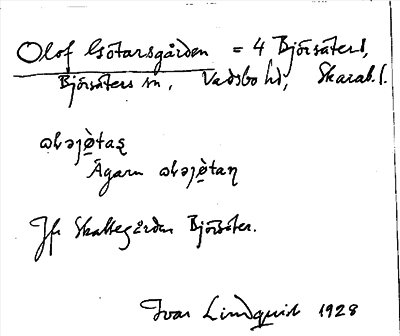 Olof Götarsgården = 4 Björsäters,
Björsäters sn, Vadsbo hd, Skarab. l.
Ägarn
Jfr Skattegården Björsäter.
Ivar Lindquist 1928